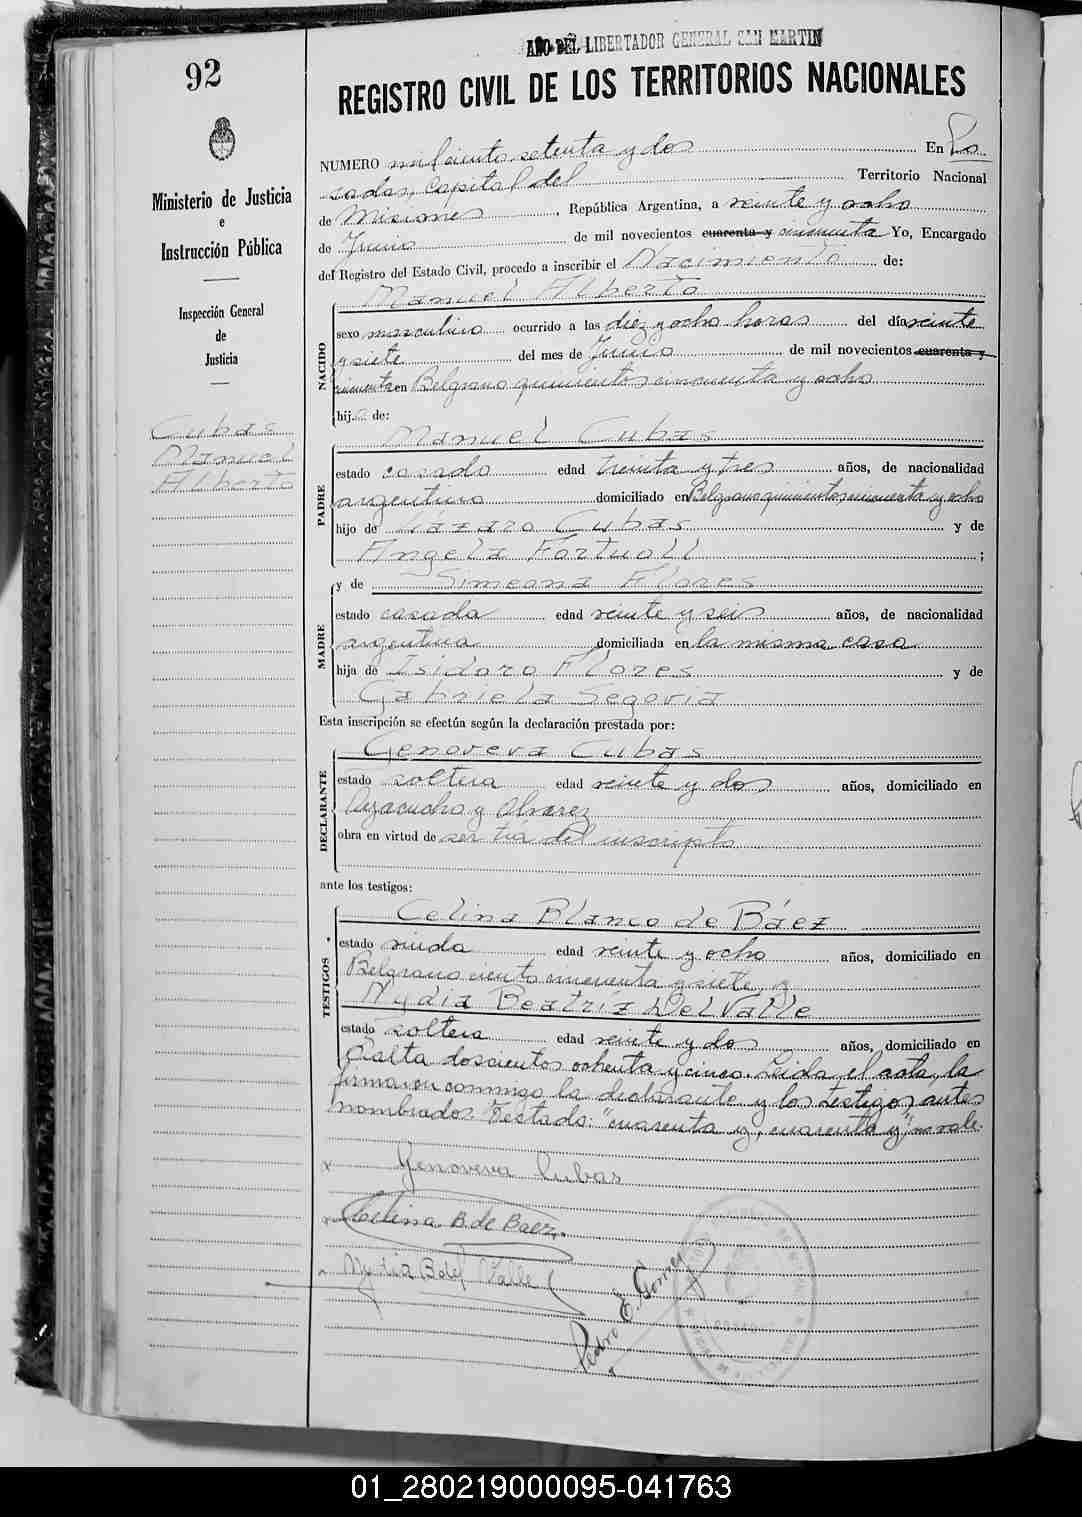 AÑO DEL LIBERTADOR GENERAL SAN MARTIN
92
REGISTRO CIVIL DE LOS TERRITORIOS NACIONALES
Ministerio de Justicia
e
Instrucción Pública
Inspección General
de
Justicia
Cubas
Manuel
Alberto
NUMERO mil ciento setenta y dos En Po
sadas, Capital del Territorio Nacional
de Misiones, República Argentina, a veinte y ocho
de Junio de mil novecientos cuarenta y cincuenta Yo, Encargado
del Registro del Estado Civil, procedo a inscribir el Nacimiento de:
NACIDO
Manuel Alberto
sexo masculino ocurrido a las diez y ocho horas del día veinte
y siete del mes de Junio de mil novecientos cuarenta y
cincuenta en Belgrano quinientos cincuenta y ocho
hijo de:
PADRE
Manuel Cubas
estado casado edad treinta y tres años, de nacionalidad
argentino domiciliado en Belgrano quinientos cincuenta y ocho
hijo de Lázaro Cubas y de
Angela ;
y de Simeona Flores
MADRE
estado casada edad veinte y seis años, de nacionalidad
argentina domiciliada en la misma casa
hija de Isidoro Flores y de
Gabriela Segovia
Esta inscripción se efectúa según la declaración prestada por:
DECLARANTE
Genoveva Cubas
estado soltera edad veinte y dos años, domiciliado en
Ayacucho y Alvarez
obra en virtud de ser tia del inscripto
ante los testigos:
TESTIGOS
Celina Blanco de Báez
estado viuda edad veinte y ocho años, domiciliado en
Belgrano ciento cincuenta y siete, y
Nydia Beatríz Del Valle
estado soltera edad veinte y dos años, domiciliado en
Rialta doscientos ochenta y cinco. Leida el acta, la
firmaron conmigo la declarante y los testigos antes
nombrados. Testado: "cuarenta y, cuarenta y," no vale.
Genoveva Cubas
Celina B. de Baez.
Nydia B del Valle
Pedro E. Gorrey
01_280219000095-041763